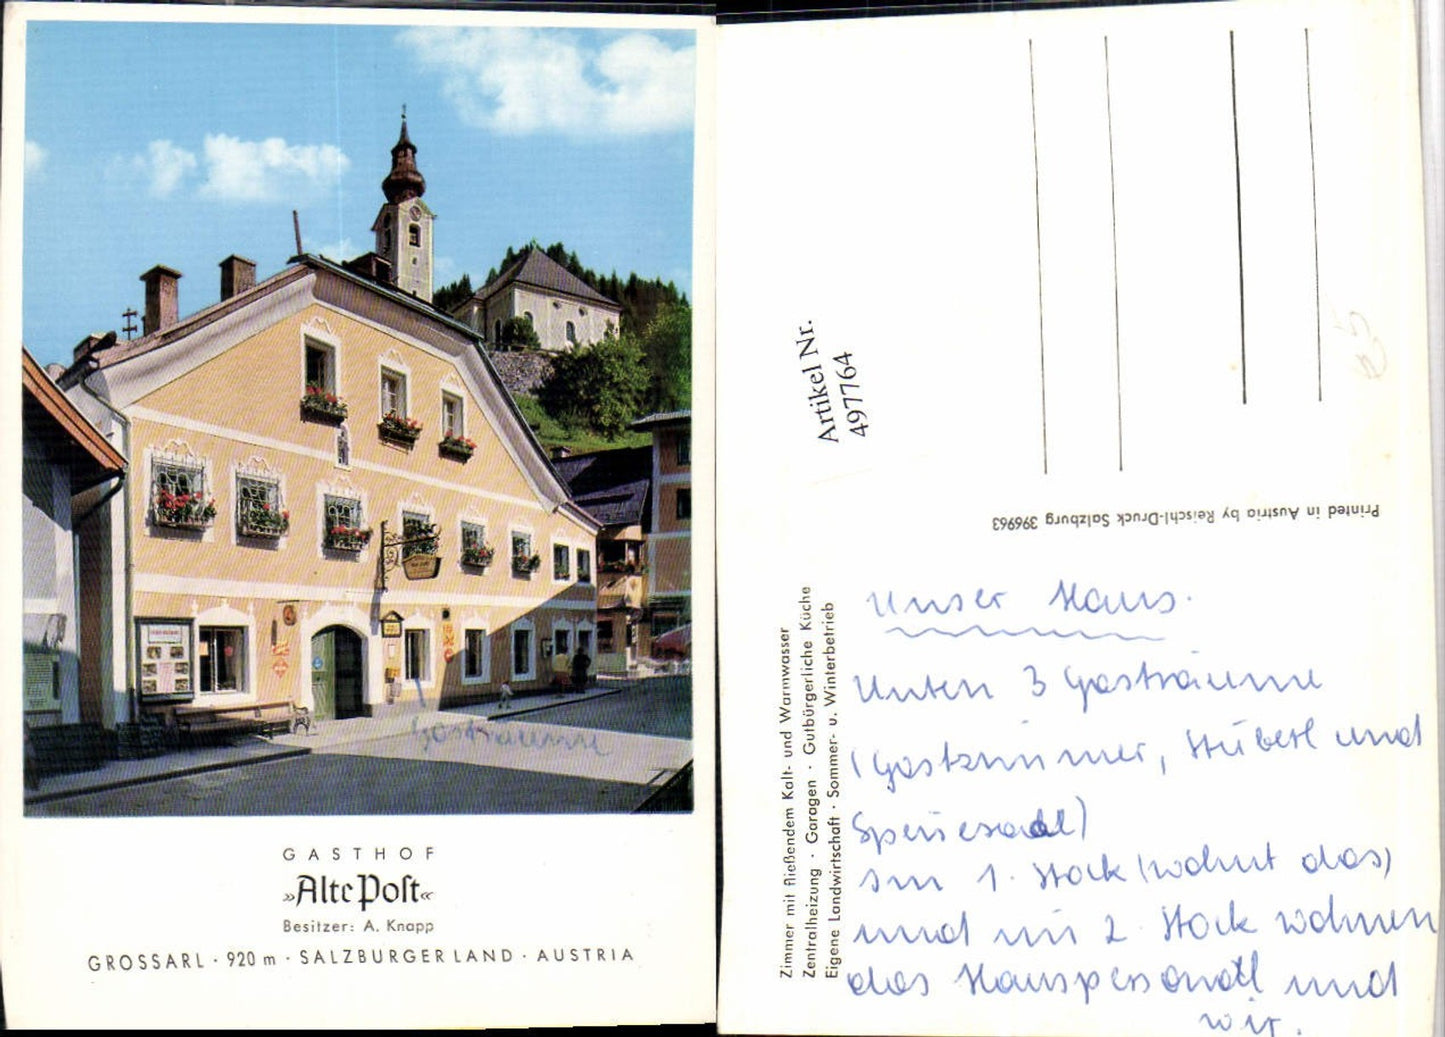 Gasträume
GASTHOF
»Alte Post«
Besitzer: A. Knapp
GROSSARL · 920 m · SALZBURGER LAND · AUSTRIA
Artikel Nr.
497764
Printed in Austria by Reischl-Druck Salzburg 396963
Zimmer mit fließendem Kalt- und Warmwasser
Zentralheizung · Garagen · Gutbürgerliche Küche
Eigene Landwirtschaft · Sommer- u. Winterbetrieb
Unser Haus.
Unten 3 Gasträume
(Gastzimmer, Stüberl und
Speisesaal)
Im 1. Stock (wohnt das)
und im 2. Stock wohnen
das Hauspersonal und
wir.